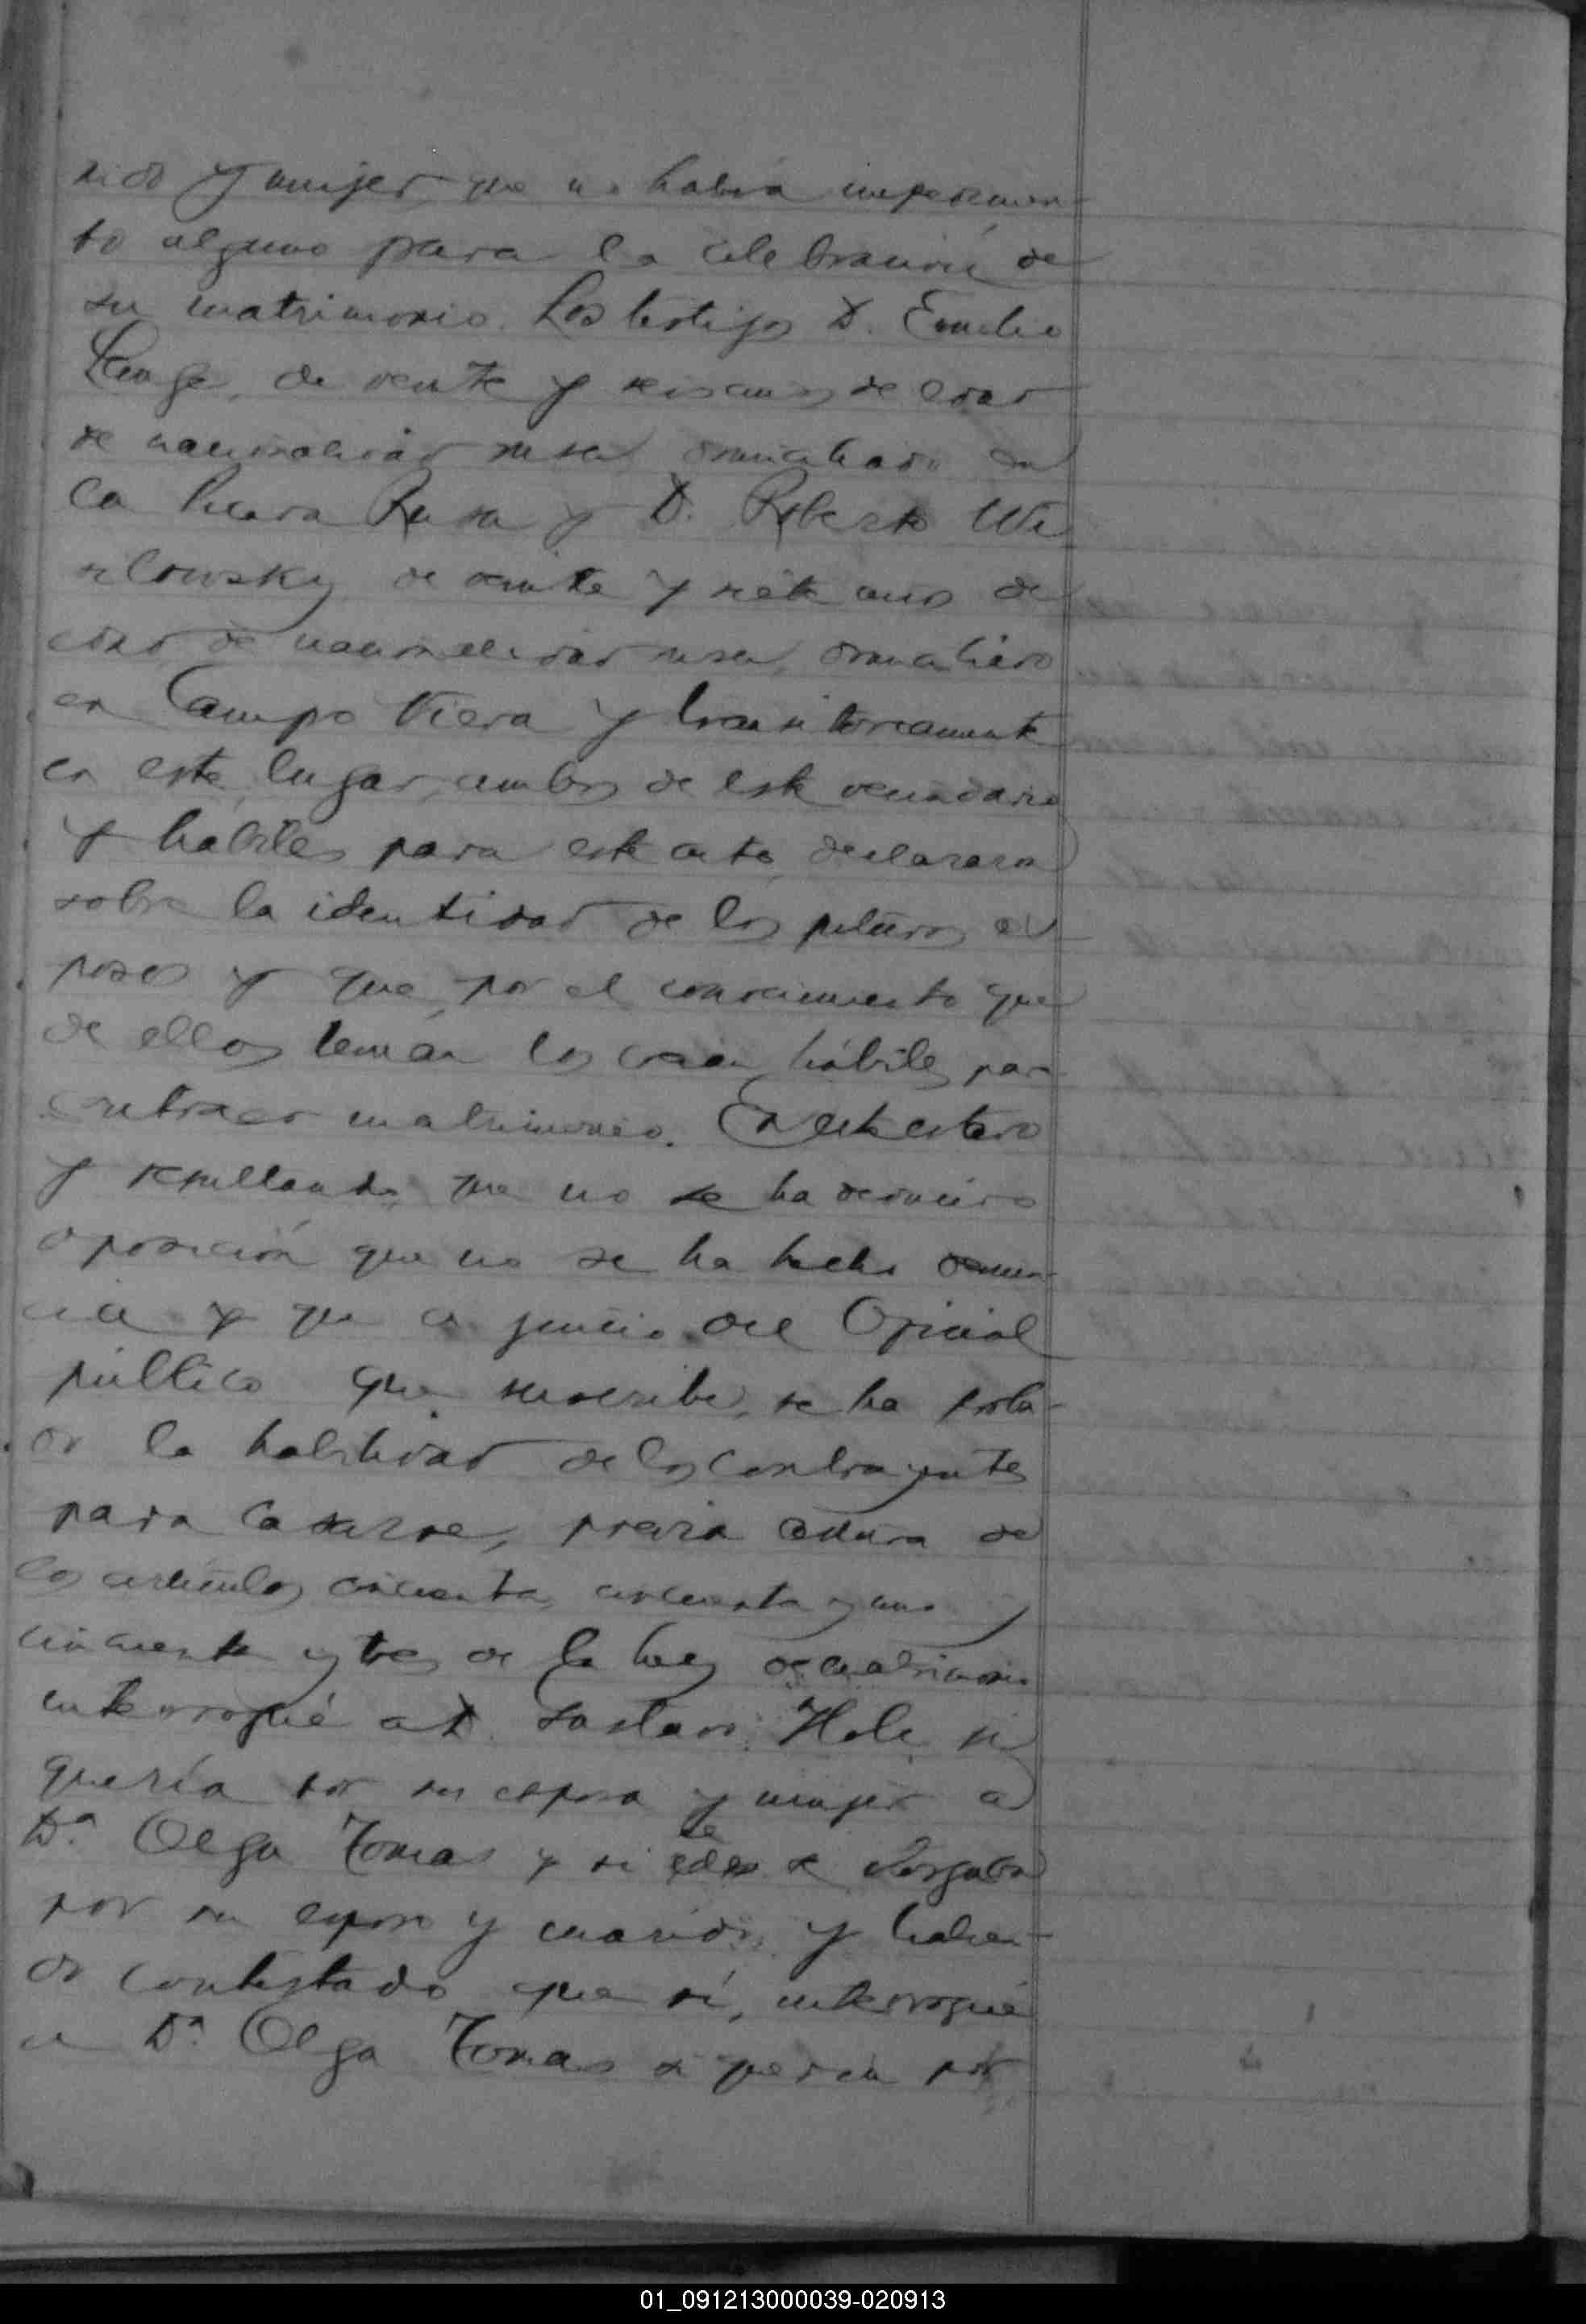 rido y mujer, que no había impedimen-
to alguno para la celebración de
su matrimonio. Los testigos D. Emilio
Lange, de veinte y seis años de edad
de nacionalidad rusa domiciliado en
la Picada Rusa y D. Roberto We
silowsky de veinte y siete años de
edad de nacionalidad rusa, domiciliado
en Campo Viera y transitoriamente
en este lugar, ambos de este vecindario
y hábiles para este acto, declararon
sobre la identidad de los futuros es
posos y que por el conocimiento que
de ellos tenían los creían hábiles para
contraer matrimonio. En este estado
y resultando que no se ha deducido
oposición que no se ha hecho denun-
cia y que a juicio del Oficial
público que suscribe, se ha proba-
do la habilidad de los contrayentes
para casarse, previa lectura de
los artículos cincuenta, cincuenta y uno y
cincuenta y tres de la ley de matrimonio
interrogué a D. Gustavo si
quería por su esposa y mujer a
Da. Olga Tomas y si se otorgaba
por su esposo y marido, y habien-
do contestado que sí, interrogué
a Da. Olga Tomas si quería por
01_091213000039-020913